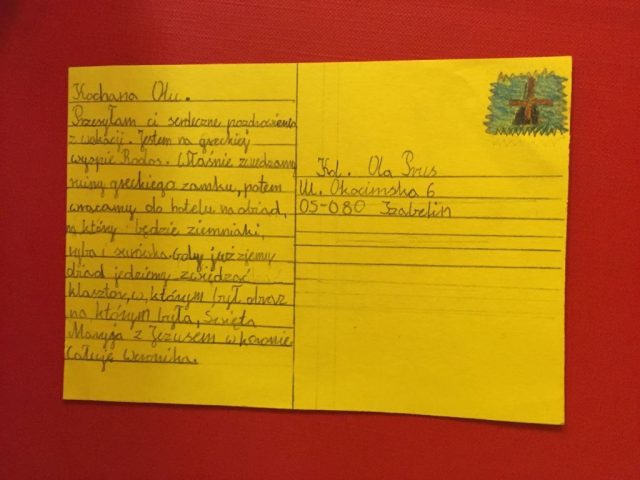 Kochana Olu.
Przesyłam ci serdeczne pozdrowienia
z wakacji. Jestem na greckiej
wyspie Rodos. Właśnie zwiedzamy
ruiny greckiego zamku, potem
wracamy do hotelu na obiad,
na który będzie ziemniaki,
ryba i surówka. Gdy już zjemy
obiad jedziemy zwiedzać
klasztor, w którym był obraz
na którym była, Święta
Maryja z Jezusem w koronie
Całuję Weronika.
Kol. Ola Prus
Ul. Okocimska 6
05-080 Izabelin